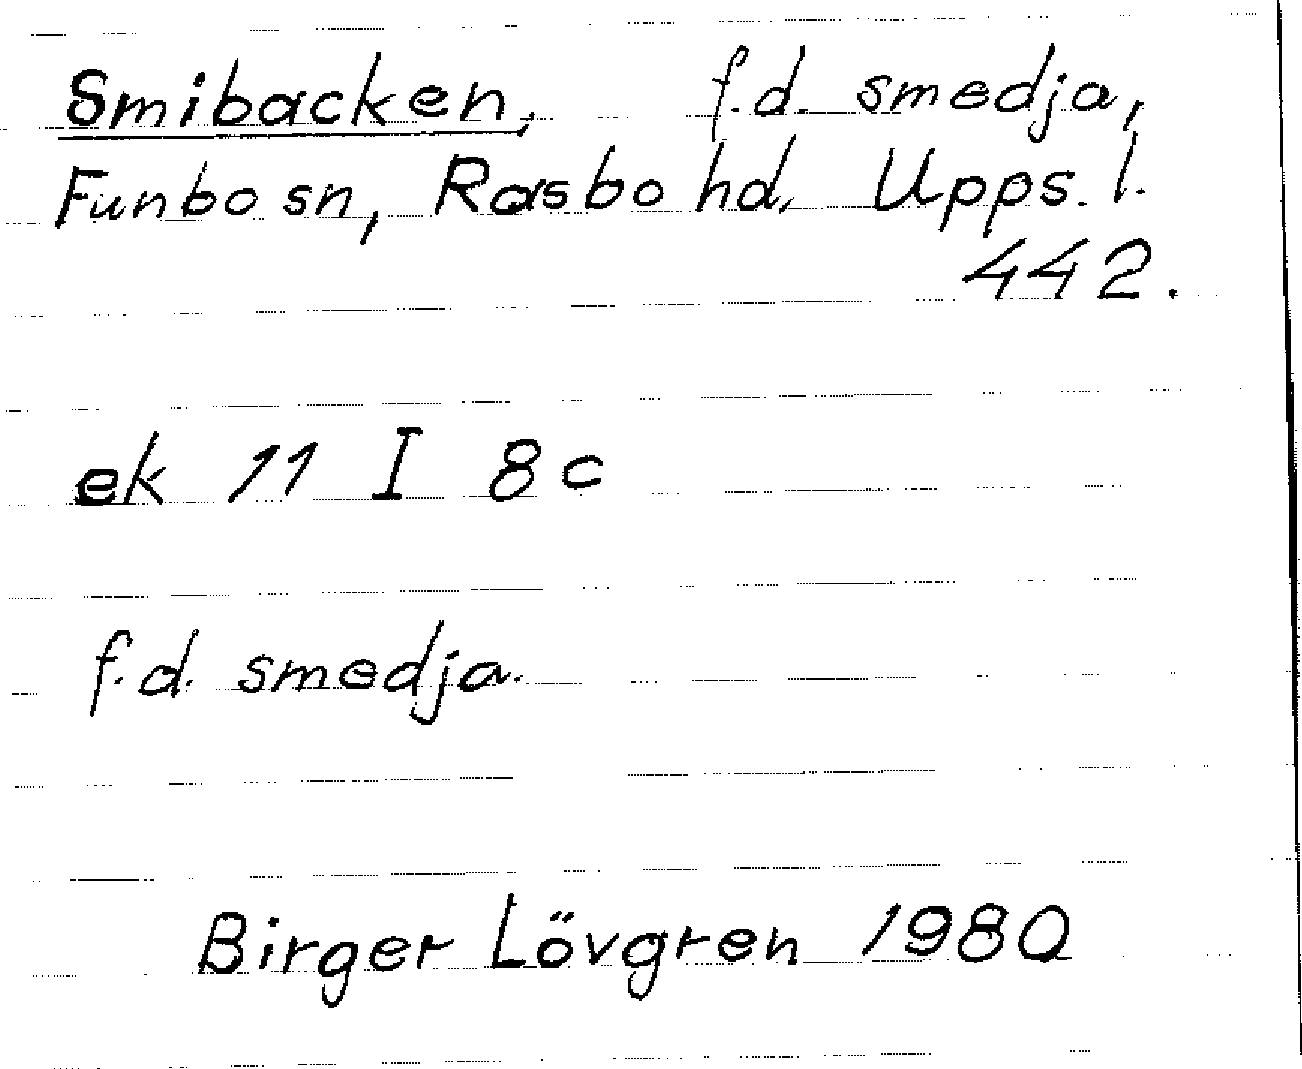 Smibacken, f.d. smedja,
Funbo sn, Rasbo hd, Upps. l.
442.
ek 11 I 8c
f.d. smedja.
Birger Lövgren 1980